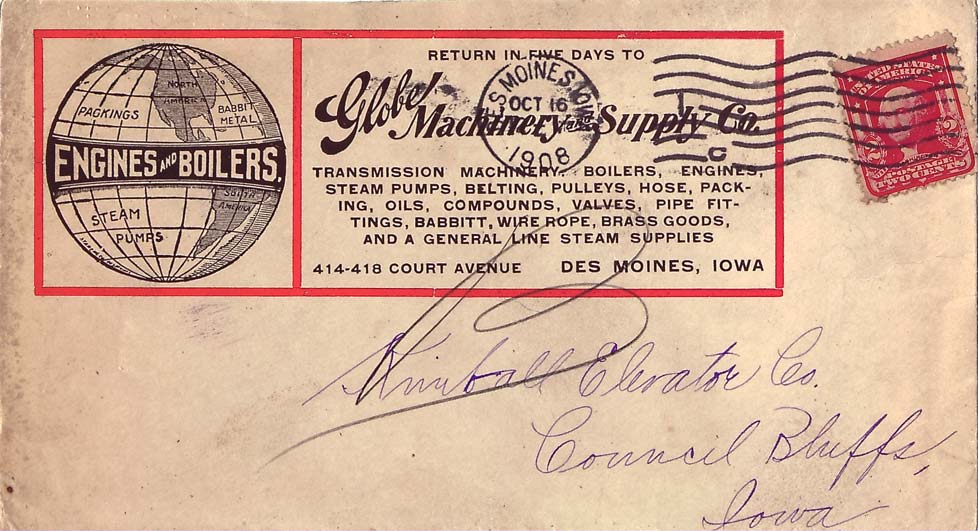 RETURN IN FIVE DAYS TO
Globe
Machinery and Supply Co.
TRANSMISSION MACHINERY, BOILERS, ENGINES,
STEAM PUMPS, BELTING, PULLEYS, HOSE, PACK-
ING, OILS, COMPOUNDS, VALVES, PIPE FIT-
TINGS, BABBITT, WIRE ROPE, BRASS GOODS,
AND A GENERAL LINE STEAM SUPPLIES
414-418 COURT AVENUE DES MOINES, IOWA
NORTH
AMERICA
PACKINGS
BABBIT
METAL
ENGINES AND BOILERS.
SOUTH
AMERICA
STEAM
PUMPS
DES MOINES, IOWA
OCT 16
1908
C
UNITED STATES
OF AMERICA
2 2
POSTAGE
TWO CENTS
Kimball Elevator Co.
Council Bluffs,
Iowa